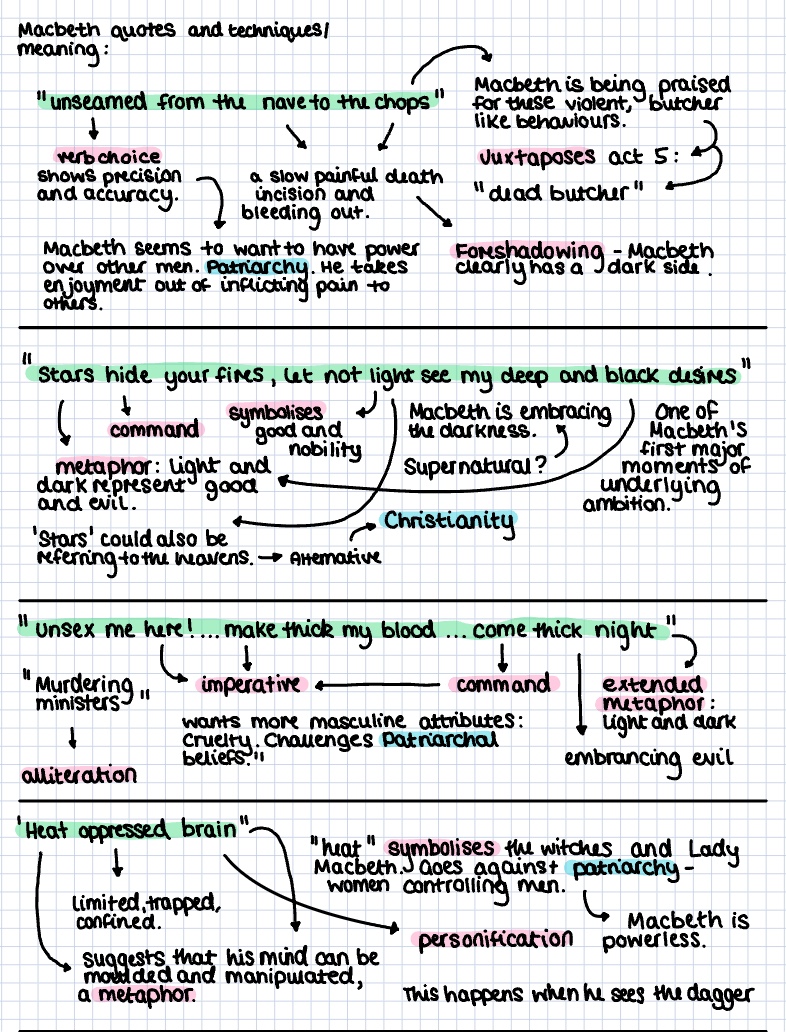 Macbeth quotes and techniques/
meaning:
"unseamed from the nave to the chops"
Macbeth is being praised
for these violent, butcher
like behaviours.
verb choice
shows precision
and accuracy.
a slow painful death
incision and
bleeding out.
Juxtaposes act 5:
"dead butcher"
Macbeth seems to want to have power
over other men. Patriarchy. He takes
enjoyment out of inflicting pain to
others.
Foreshadowing - Macbeth
clearly has a dark side.
"Stars hide your fires, let not light see my deep and black desires"
command
symbolises
good and
nobility
Macbeth is embracing
the darkness.
Supernatural?
One of
Macbeth's
first major
moments of
underlying
ambition.
metaphor: Light and
dark represent good
and evil.
Christianity
'Stars' could also be
referring to the heavens. → Alternative
"Unsex me here!...make thick my blood ... come thick night"
"Murdering
ministers"
alliteration
imperative
command
extended
metaphor:
light and dark
wants more masculine attributes:
Cruelty. Challenges Patriarchal
beliefs."
embrancing evil
'Heat oppressed brain"
"heat" symbolises the witches and Lady
Macbeth. Goes against patriarchy -
women controlling men.
Limited, trapped,
confined.
Macbeth is
powerless.
personification
suggests that his mind can be
moulded and manipulated,
a metaphor.
This happens when he sees the dagger